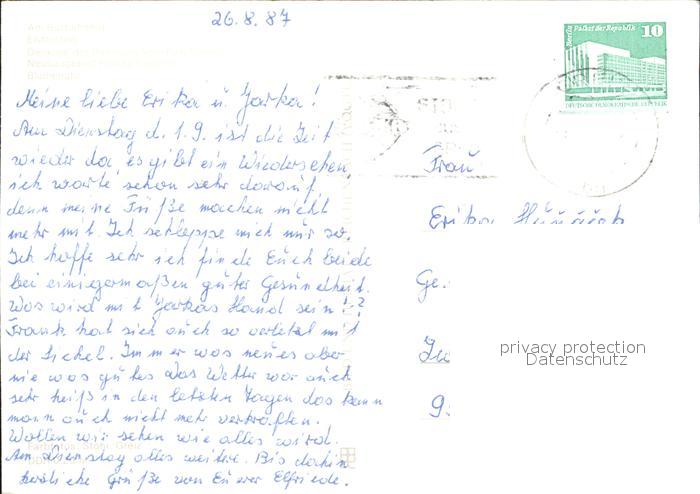 26.8.87
Meine liebe Erika u. Jarka!
Am Dienstag d. 1.9. ist die Zeit
wieder da, es gibt ein Wiedersehen,
ich warte schon sehr darauf,
denn meine Füße machen nicht
mehr mit. Ich schleppe mich nur so.
Ich hoffe sehr ich finde Euch beide
bei einigermaßen guter Gesundheit.
Was wird mit Jarkas Hand sein!?
Frank hat sich auch so verletzt mit
der Sichel. Immer was neues aber
nie was gutes Das Wetter war auch
sehr heiß in den letzten Tagen das kann
mann auch nicht mehr verkraften.
Wollen wir sehen wie alles wird.
Am Dienstag alles weitere. Bis dahin
herzliche Grüße von Eurer Elfriede.
Berlin Palast der Republik 10
DEUTSCHE DEMOKRATISCHE REPUBLIK
Frau
Erika
Ge.
9
privacy protection
Datenschutz